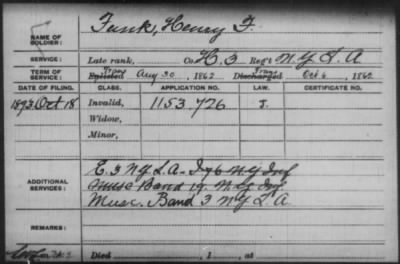 Funk, Henry F.
NAME OF SOLDIER:
SERVICE: Late rank, Co. H. 3 Reg't N.Y. L. A.
TERM OF SERVICE: Enlisted Trans Aug 30, 1862 Discharged Trans Oct 6, 1862
DATE OF FILING. CLASS. APPLICATION NO. LAW. CERTIFICATE NO.
1893 Oct 18 Invalid, 1153.726 J.
Widow,
Minor,
ADDITIONAL SERVICES: E. 3 N.Y. L. A. N.Y. Inf
Musc Band 19. N.Y. Inf
Musc. Band 3 N.Y. L. A.
REMARKS:
Died , 1 , at